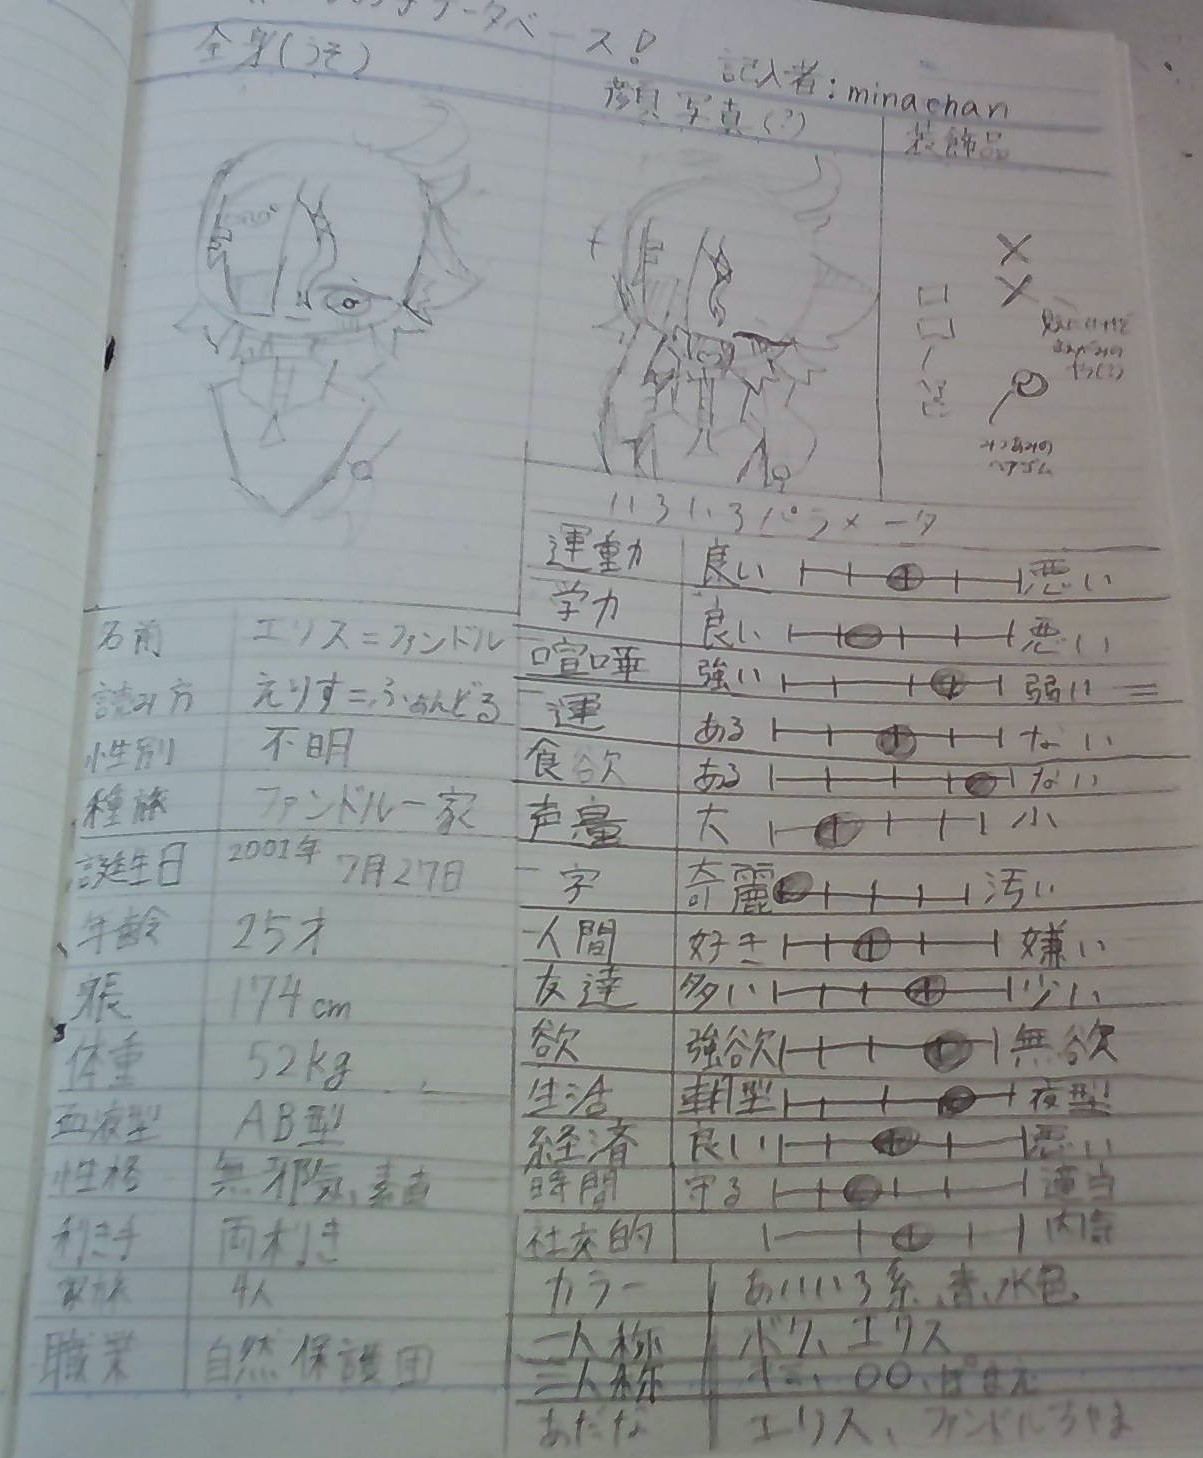 データベース!
記入者:minachan
全身(うそ)
顔写真(?)
装飾品
みつあみの
ヘアゴム
いろいろパラメータ
名前 エリス=ファンドル
読み方 えりす=ふぁんどる
性別 不明
種族 ファンドル一家
誕生日 2001年 7月27日
年齢 25才
身長 174cm
体重 52kg
血液型 AB型
性格 無邪気、素直
利き手 両利き
家族 4人
職業 自然保護団
運動 良い 悪い
学力 良い 悪い
喧嘩 強い 弱い
運 ある ない
食欲 ある ない
声量 大 小
字 奇麗 汚い
人間 好き 嫌い
友達 多い 少い
欲 強欲 無欲
生活 朝型 夜型
経済 良い 悪い
時間 守る 適当
社交的 内気
カラー あいいろ系、青、水色
一人称 ボク、エリス
二人称 〇〇、ぽまえ
あだな エリス、ファンドルちゃま